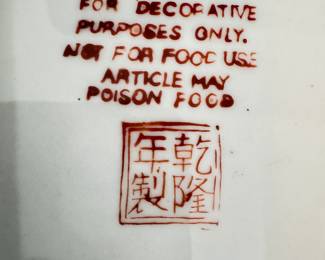 FOR DECORATIVE
PURPOSES ONLY.
NOT FOR FOOD USE
ARTICLE MAY
POISON FOOD
乾隆
年製